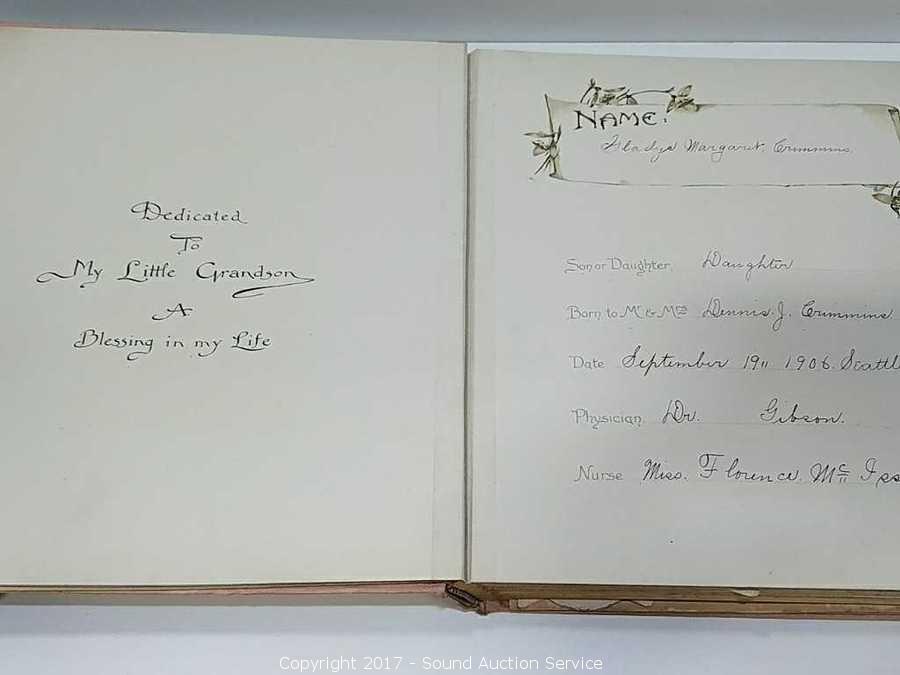 Dedicated
To
My Little Grandson
A
Blessing in my Life
NAME.
Gladys Margaret. Crimmins.
Son or Daughter. Daughter
Born to Mr & Mrs Dennis. J. Crimmins.
Date September 19" 1906. Seattl
Physician. Dr. Gibson.
Nurse Miss. Florence. Mc
Copyright 2017 - Sound Auction Service